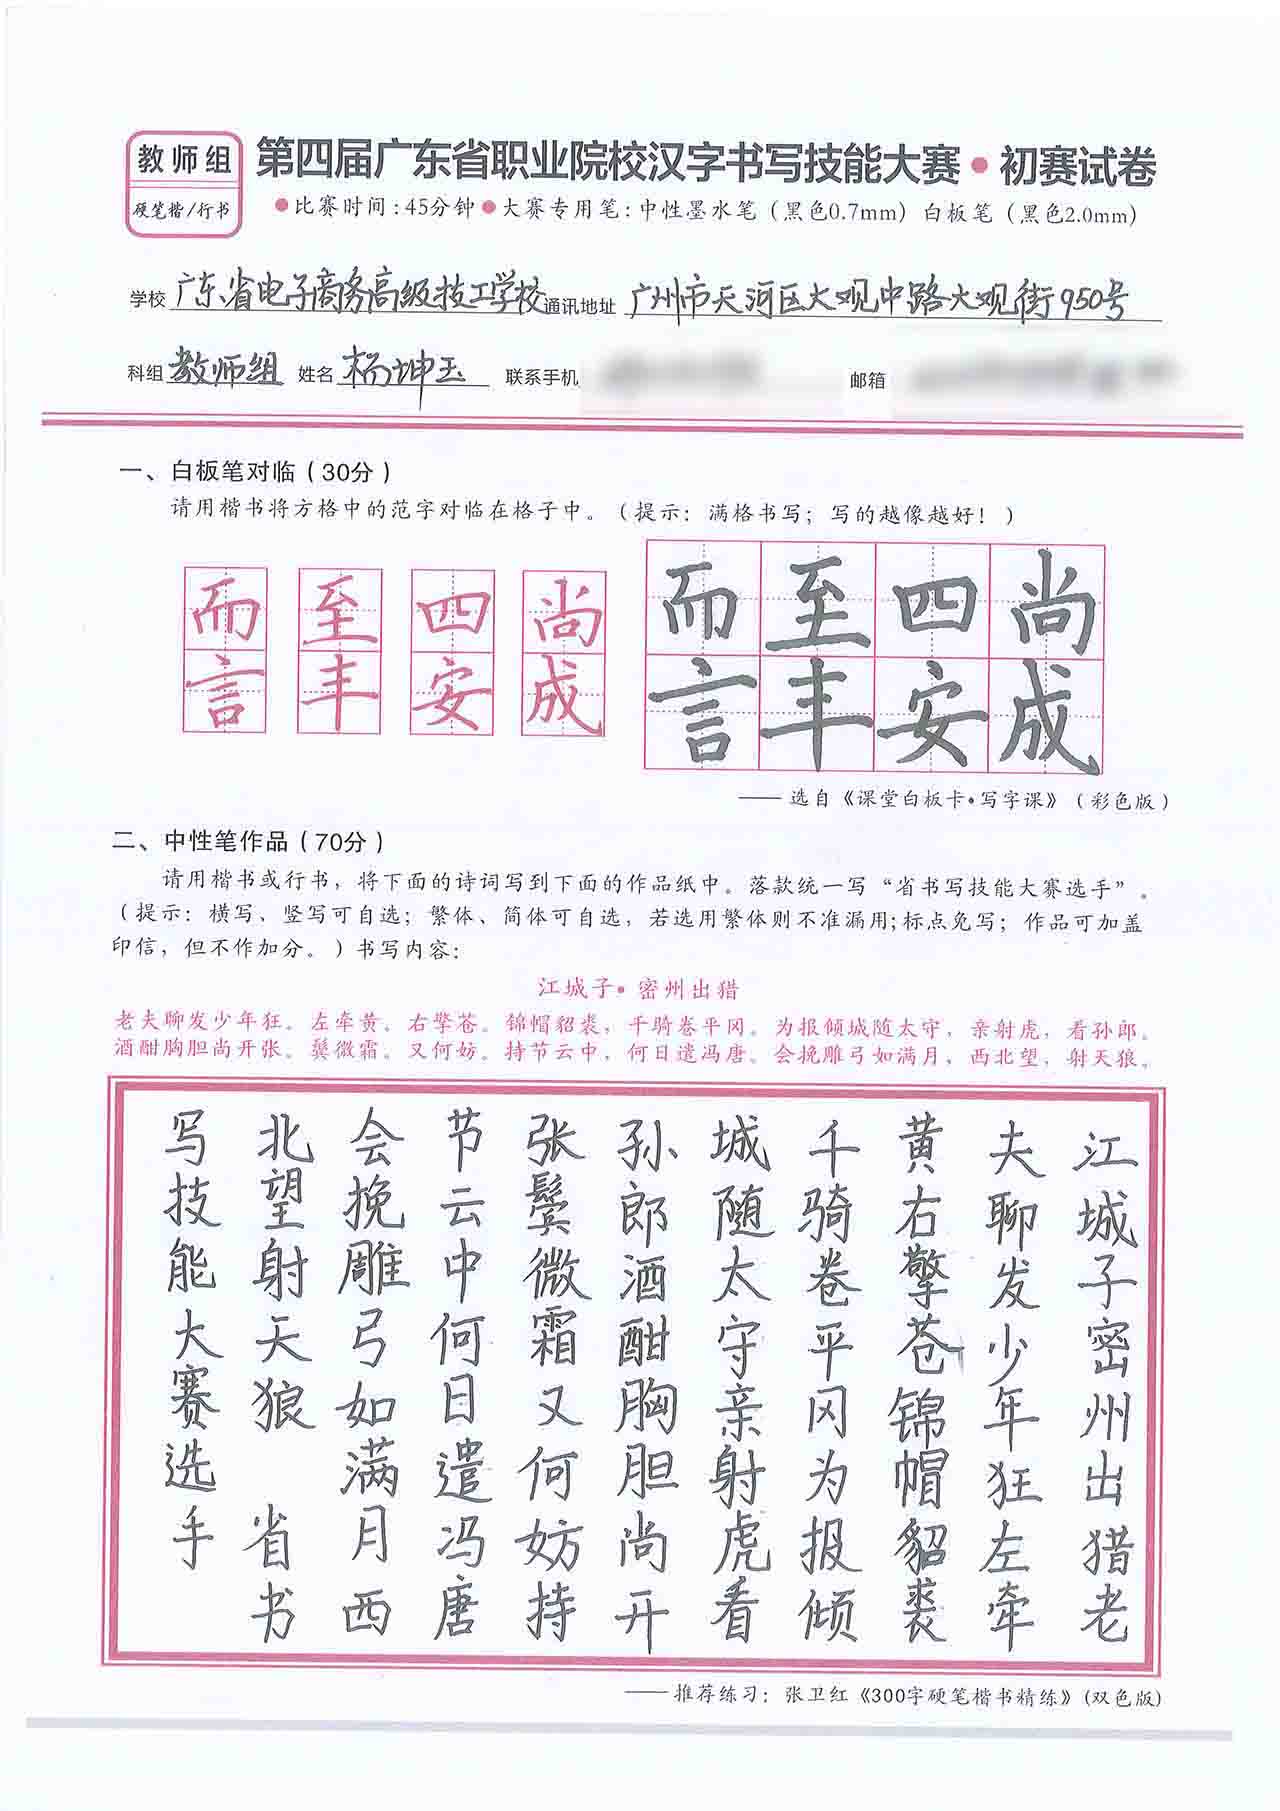 教师组
硬笔楷/行书
第四届广东省职业院校汉字书写技能大赛·初赛试卷
●比赛时间：45分钟●大赛专用笔：中性墨水笔（黑色0.7mm）白板笔（黑色2.0mm）
学校 广东省电子商务高级技工学校 通讯地址 广州市天河区大观中路大观街950号
科组 教师组 姓名 杨坤玉 联系手机 邮箱
一、白板笔对临（30分）
请用楷书将方格中的范字对临在格子中。（提示：满格书写；写的越像越好！）
而 至 四 尚
言 丰 安 成
而 至 四 尚
言 丰 安 成
——选自《课堂白板卡·写字课》（彩色版）
二、中性笔作品（70分）
请用楷书或行书，将下面的诗词写到下面的作品纸中。落款统一写“省书写技能大赛选手”。
（提示：横写、竖写可自选；繁体、简体可自选，若选用繁体则不准漏用;标点免写；作品可加盖
印信，但不作加分。）书写内容：
江城子·密州出猎
老夫聊发少年狂。左牵黄。右擎苍。锦帽貂裘，千骑卷平冈。为报倾城随太守，亲射虎，看孙郎。
酒酣胸胆尚开张。鬓微霜。又何妨。持节云中，何日遣冯唐。会挽雕弓如满月，西北望，射天狼。
江城子密州出猎老
夫聊发少年狂左牵
黄右擎苍锦帽貂裘
千骑卷平冈为报倾
城随太守亲射虎看
孙郎酒酣胸胆尚开
张鬓微霜又何妨持
节云中何日遣冯唐
会挽雕弓如满月西
北望射天狼 省书
写技能大赛选手
——推荐练习：张卫红《300字硬笔楷书精练》(双色版)